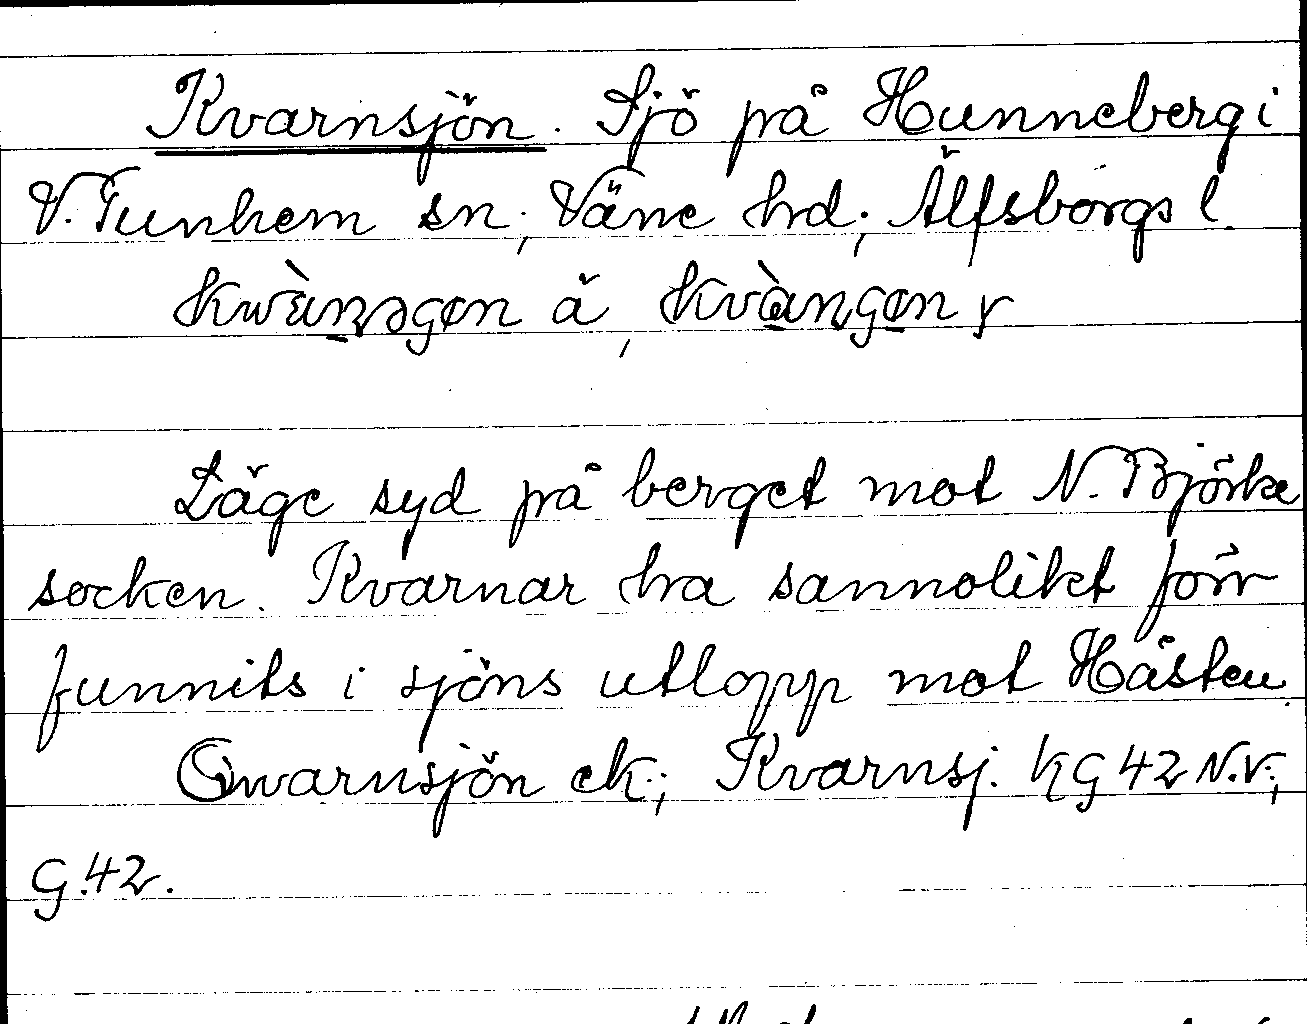 Kvarnsjön. Sjö på Hunneberg i
V. Tunhem sn; Väne hd; Älfsborgs l.
å,
Läge syd på berget mot N. Björke
socken. Kvarnar ha sannolikt förr
funnits i sjöns utlopp mot Hästeu.
Qwarnsjön ek.; Kvarnsj. KG 42 N.V.;
G.42.